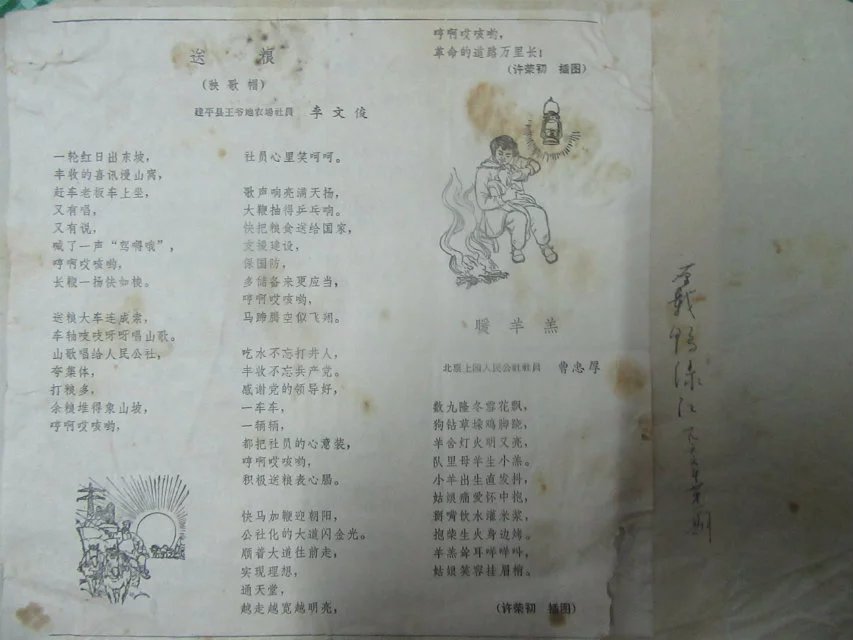 送 粮
（秧歌帽）
建平县王爷地农场社员 李文俊
一轮红日出东坡，
丰收的喜讯漫山窝，
赶车老板车上坐，
又有唱，
又有说，
喊了一声“驾嘚哦”，
哼啊哎咳哟，
长鞭一扬快如梭。
送粮大车连成索，
车轴吱吱呀呀唱山歌。
山歌唱给人民公社，
夸集体，
打粮多，
余粮堆得象山坡，
哼啊哎咳哟，
社员心里笑呵呵。
歌声响亮满天扬，
大鞭抽得乒乓响。
快把粮食送给国家，
支援建设，
保国防，
多储备来更应当，
哼啊哎咳哟，
马蹄腾空似飞翔。
吃水不忘打井人，
丰收不忘共产党。
感谢党的领导好，
一车车，
一辆辆，
都把社员的心意装，
哼啊哎咳哟，
积极送粮表心肠。
快马加鞭迎朝阳，
公社化的大道闪金光。
顺着大道往前走，
实现理想，
通天堂，
越走越宽越明亮，
哼啊哎咳哟，
革命的道路万里长！
（许荣初 插图）
暖羊羔
北票上园人民公社社员 曹忠厚
数九隆冬雪花飘，
狗钻草垛鸡脚跷，
羊舍灯火明又亮，
队里母羊生小羔。
小羊出生直发抖，
姑娘痛爱怀中抱，
掰嘴饮水灌米浆，
抱柴生火身边烤。
羊羔耸耳咩咩叫，
姑娘笑容挂眉梢。
（许荣初 插图）
载鸭绿江